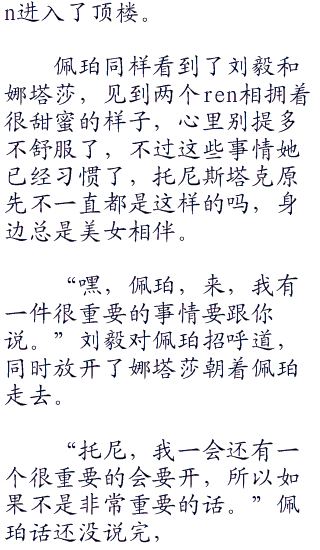 n进入了顶楼。
佩珀同样看到了刘毅和
娜塔莎，见到两个ren相拥着
很甜蜜的样子，心里别提多
不舒服了，不过这些事情她
已经习惯了，托尼斯塔克原
先不一直都是这样的吗，身
边总是美女相伴。
“嘿，佩珀，来，我有
一件很重要的事情要跟你
说。”刘毅对佩珀招呼道，
同时放开了娜塔莎朝着佩珀
走去。
“托尼，我一会还有一
个很重要的会要开，所以如
果不是非常重要的话。”佩
珀话还没说完，